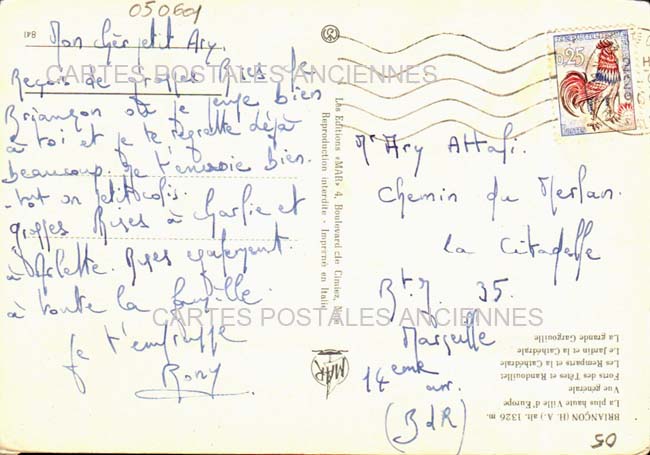 050601
841
Mon chèr petit Ary.
Reçois de grosses Bises de
Briançon où je pense bien
à toi et je te regrette déjà
beaucoup. Je t'envoie bien-
-tôt un petit colis.
grosses Bises à Charlie et
à Arlette. Bises également
à toute la famille.
Je t'embrasse
Rony
CARTES POSTALES ANCIENNES
CARTES POSTALES ANCIENNES
Les Editions «MAR» 4, Boulevard de Cimiez, Nice
Reproduction interdite - Imprimé en Italie
MAR
0,25
Mr Ary Attali.
Chemin du Merlan.
La Citadelle
Bt. J. 35.
Marseille
14eme arr.
(BdR)
BRIANÇON (H. A.) alt. 1326 m.
La plus haute Ville d'Europe
Vue générale
Forts des Têtes et Randouillet
Les Remparts et la Cathédrale
Le Jardin et la Cathédrale
La grande Gargouille
05